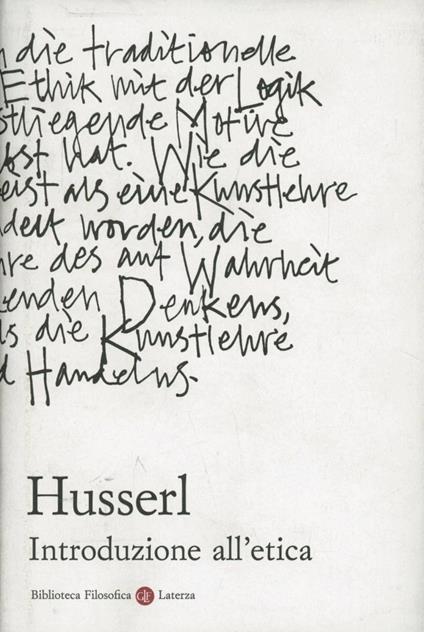 die traditionelle
Ethik mit der Logik
stliegende Motive
ost hat. Wie die
eist als eine Kunstlehre
delt worden, die
hre des auf Wahrheit
enden Denkens,
ls die Kunstlehre
d Handelns.
Husserl
Introduzione all'etica
Biblioteca Filosofica GLF Laterza